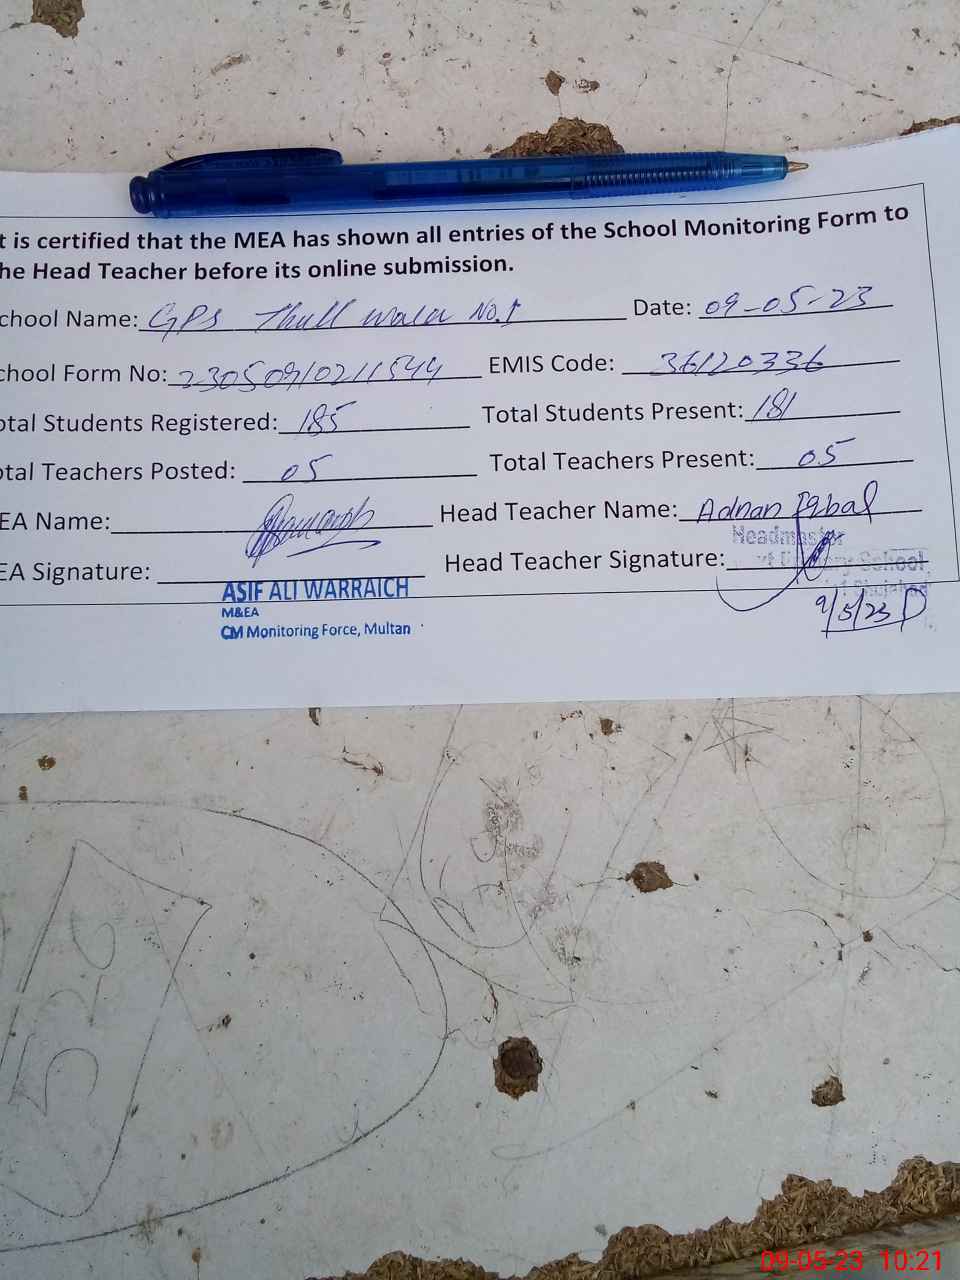 t is certified that the MEA has shown all entries of the School Monitoring Form to
he Head Teacher before its online submission.
chool Name: GPS Thull wala No.1 Date: 09-05-23
chool Form No: 23050910211544 EMIS Code: 36120336
otal Students Registered: 185 Total Students Present: 181
otal Teachers Posted: 05 Total Teachers Present: 05
EA Name: Head Teacher Name: Adnan Iqbal
EA Signature: Head Teacher Signature:
Headmaster
School
ASIF ALI WARRAICH
M&EA
CM Monitoring Force, Multan
9/5/23
09-05-23 10:21